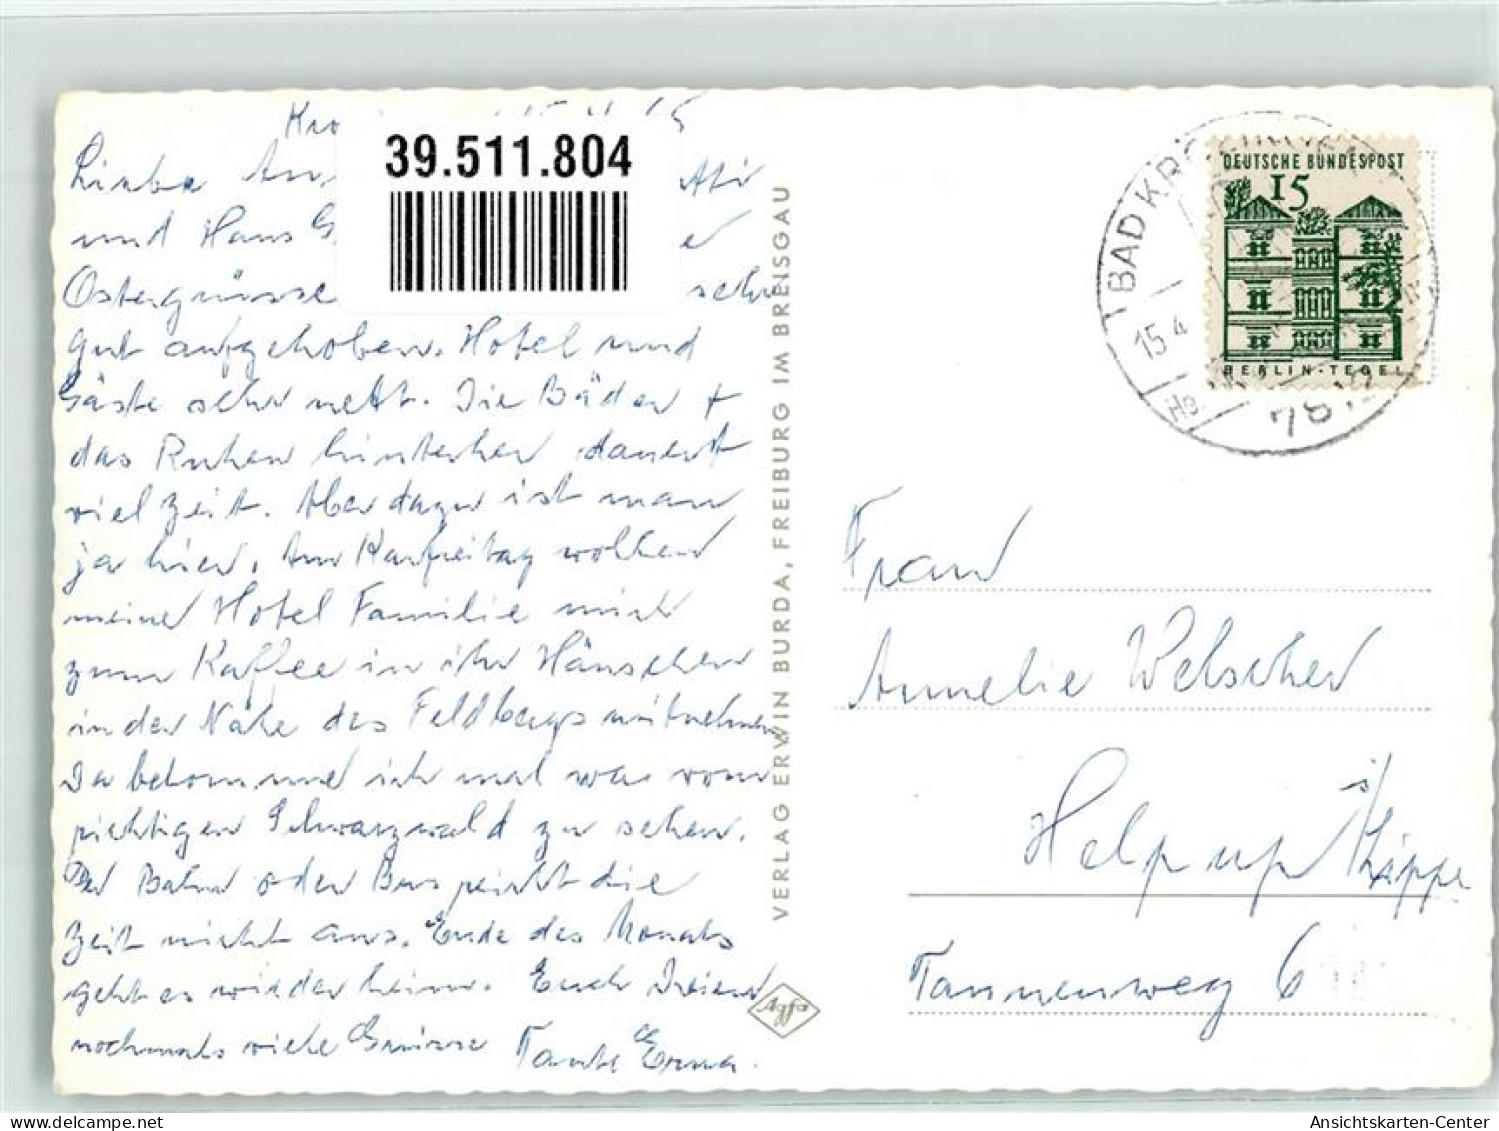 39.511.804
Liebe
und Hans G.
Ostergrüsse sehr
gut aufgehoben. Hotel und
Gäste sehr nett. Die Bäder +
das Ruhen hinterher dauert
viel Zeit. Aber dazu ist man
ja hier. Am Karfreitag wollen
meine Hotel Familie mich
zum Kaffee in ihr Häuschen
in der Nähe des Feldbergs mitnehmen
Da bekomme ich mal was vom
richtigen Schwarzwald zu sehen.
Bahn oder Bus reicht die
Zeit nicht aus. Ende des Monats
geht es wieder heim. Euch Dreien
nochmals viele Grüsse Tante Erna.
VERLAG ERWIN BURDA, FREIBURG IM BREISGAU
Agfa
BAD KROZINGEN
15.4
DEUTSCHE BUNDESPOST
15
BERLIN-TEGEL
Frau
Annelie Welscher
Helpup i/Lippe
Tannenweg 6
Ansichtskarten-Center